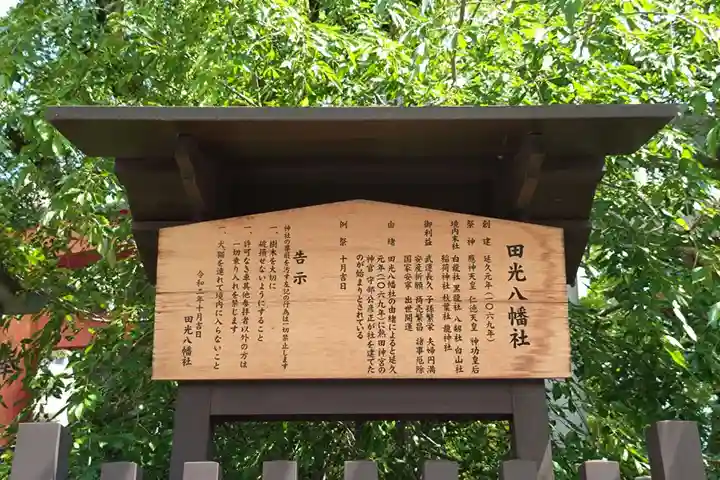 田光八幡社
創建 延久元年(一〇六九年)
祭神 應神天皇 仁徳天皇 神功皇后
境内末社 白龍社 黒龍社 八剱社 白山社
稲荷神社 秋葉社 龍神社
御利益 武運長久 子孫繁栄 夫婦円満
安産祈願 商売繁昌 諸事厄除
国家安寧 出世開運
由緒 田光八幡社の由緒によると延久
元年(一〇六九年)に熱田神宮の
神官 守部公彦正が社を建てた
のが始まりとされている
例祭 十月吉日
告示
神社の尊厳を汚す左記の行為は一切禁止します
一、樹木を大切に
破損せないようにすること
一、許可なき車其他参拝者以外の方は
一切乗り入れを禁じます
一、犬猫を連れて境内に入らないこと
令和二年十月吉日
田光八幡社
奉